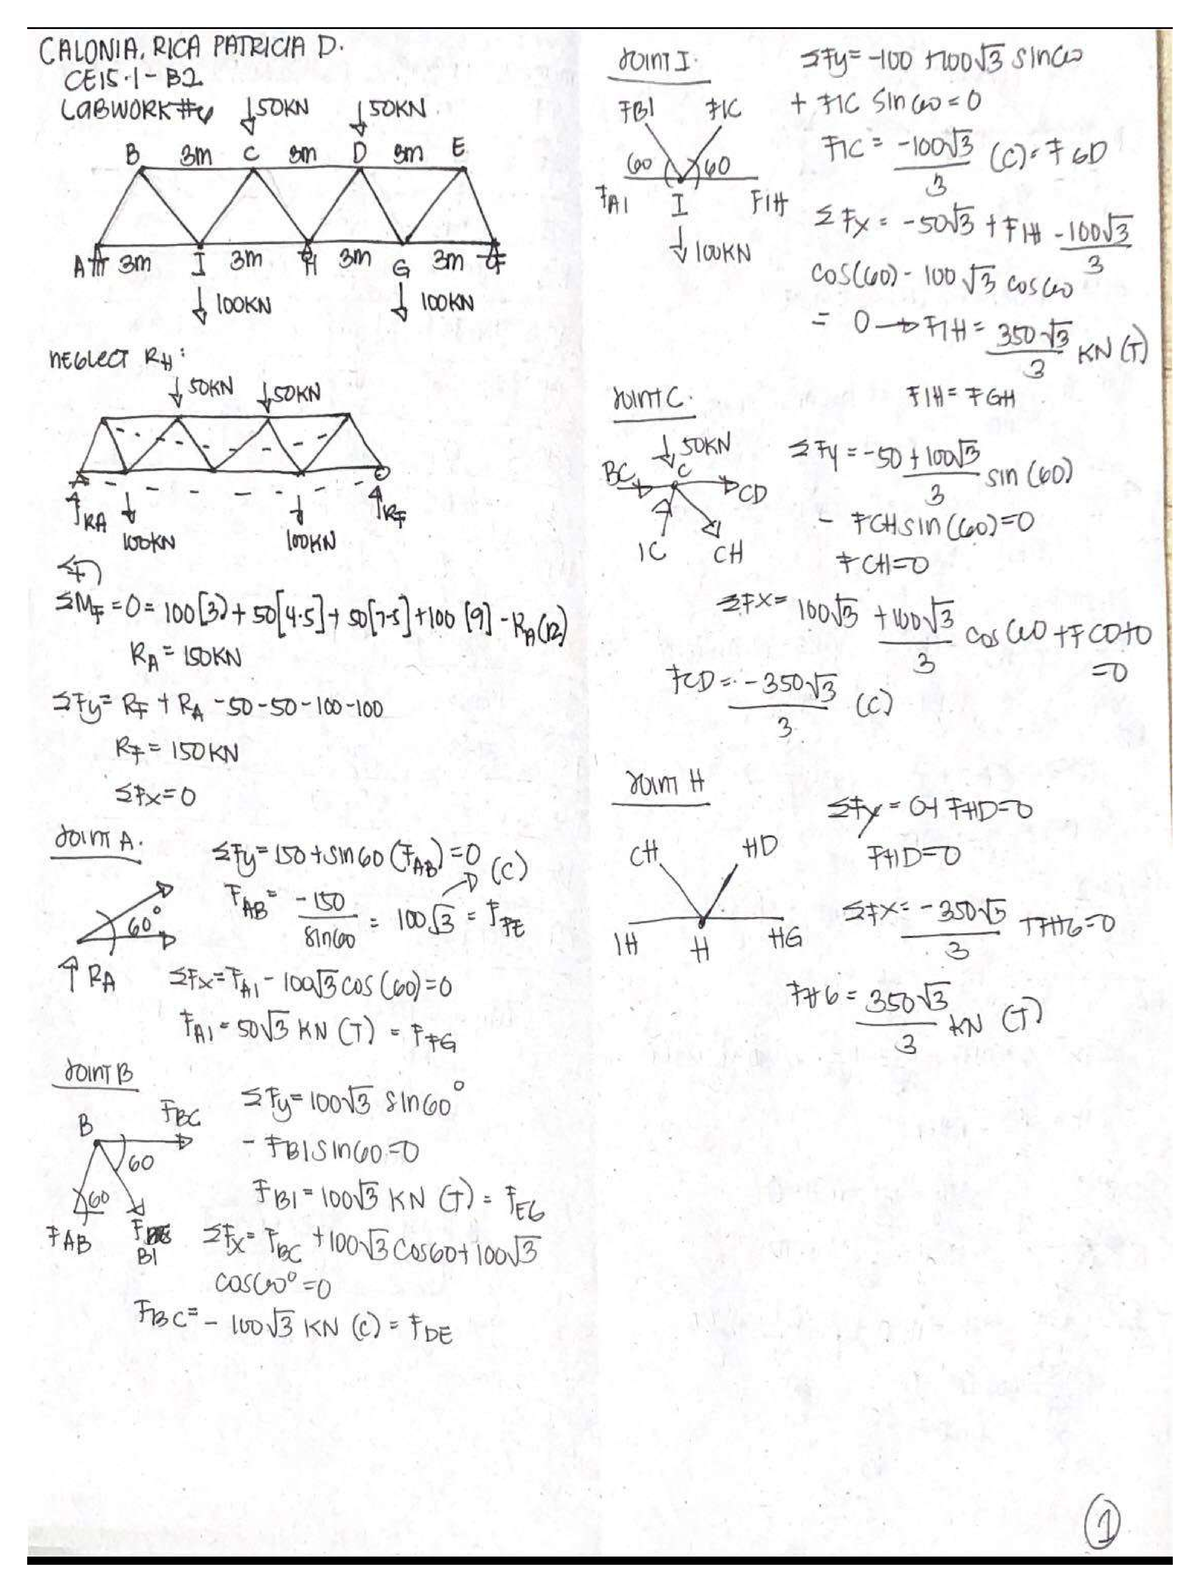 CALONIA, RICA PATRICIA D.
CE15-1 - B2
LABWORK #6
50KN 50KN
B 3m C 3m D 3m E
A 3m I 3m H 3m G 3m F
100KN 100KN
NEGLECT RH:
50KN 50KN
RA RF
100KN 100KN
ΣMF = 0 = 100[3] + 50[4.5] + 50[7.5] + 100[9] - RA(12)
RA = 150KN
ΣFy = RF + RA - 50 - 50 - 100 - 100
RF = 150KN
ΣFx = 0
Joint A.
ΣFy = 150 + sin60 (FAB) = 0 (C)
FAB = -150/sin60 = 100√3 = FFE
60°
RA
ΣFx = FAI - 100√3 cos(60) = 0
FAI = 50√3 KN (T) = FFG
Joint B
B FBC
60
60
FAB BI
ΣFy = 100√3 sin60°
- FBI sin60 = 0
FBI = 100√3 KN (T) = FEG
ΣFx = FBC + 100√3 cos60 + 100√3
cos60° = 0
FBC = - 100√3 KN (C) = FDE
Joint I.
FBI FIC
60 60
FAI I FIH
100KN
ΣFy = -100 + 100√3 sin60
+ FIC sin60 = 0
FIC = -100√3/3 (C) = FGD
ΣFx = -50√3 + FIH - 100√3/3
cos(60) - 100√3 cos60
= 0 → FIH = 350√3/3 KN (T)
FIH = FGH
Joint C.
50KN
BC C CD
IC CH
ΣFy = -50 + 100√3/3 sin(60)
- FCH sin(60) = 0
FCH = 0
ΣFx = 100√3 + 100√3/3 cos60 + FCD + 0
= 0
FCD = -350√3/3 (C)
Joint H
CH HD
IH H HG
ΣFy = 0 + FHD = 0
FHD = 0
ΣFx = -350√3/3 + FHG = 0
FHG = 350√3/3 KN (T)
1